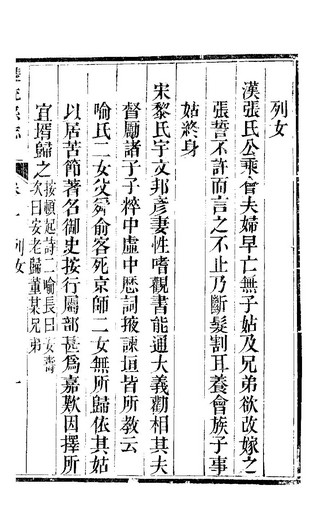 列女
漢張氏公乘會夫婦早亡無子姑及兄弟欲改嫁之
張誓不許而言之不止乃斷髮割耳養會族子事
姑終身
宋黎氏宇文邦彥妻性嗜觀書能通大義勸相其夫
督勵諸子子粹中虛中歷詞掖諫垣皆所教云
喻氏二女父俞客死京師二女無所歸依其姑
以居苦節著名御史按行屬部甚為嘉歎因擇所
宜壻歸之按頓起詩二喻長曰安壽
次曰安老歸董某兄弟
卷 列女 一